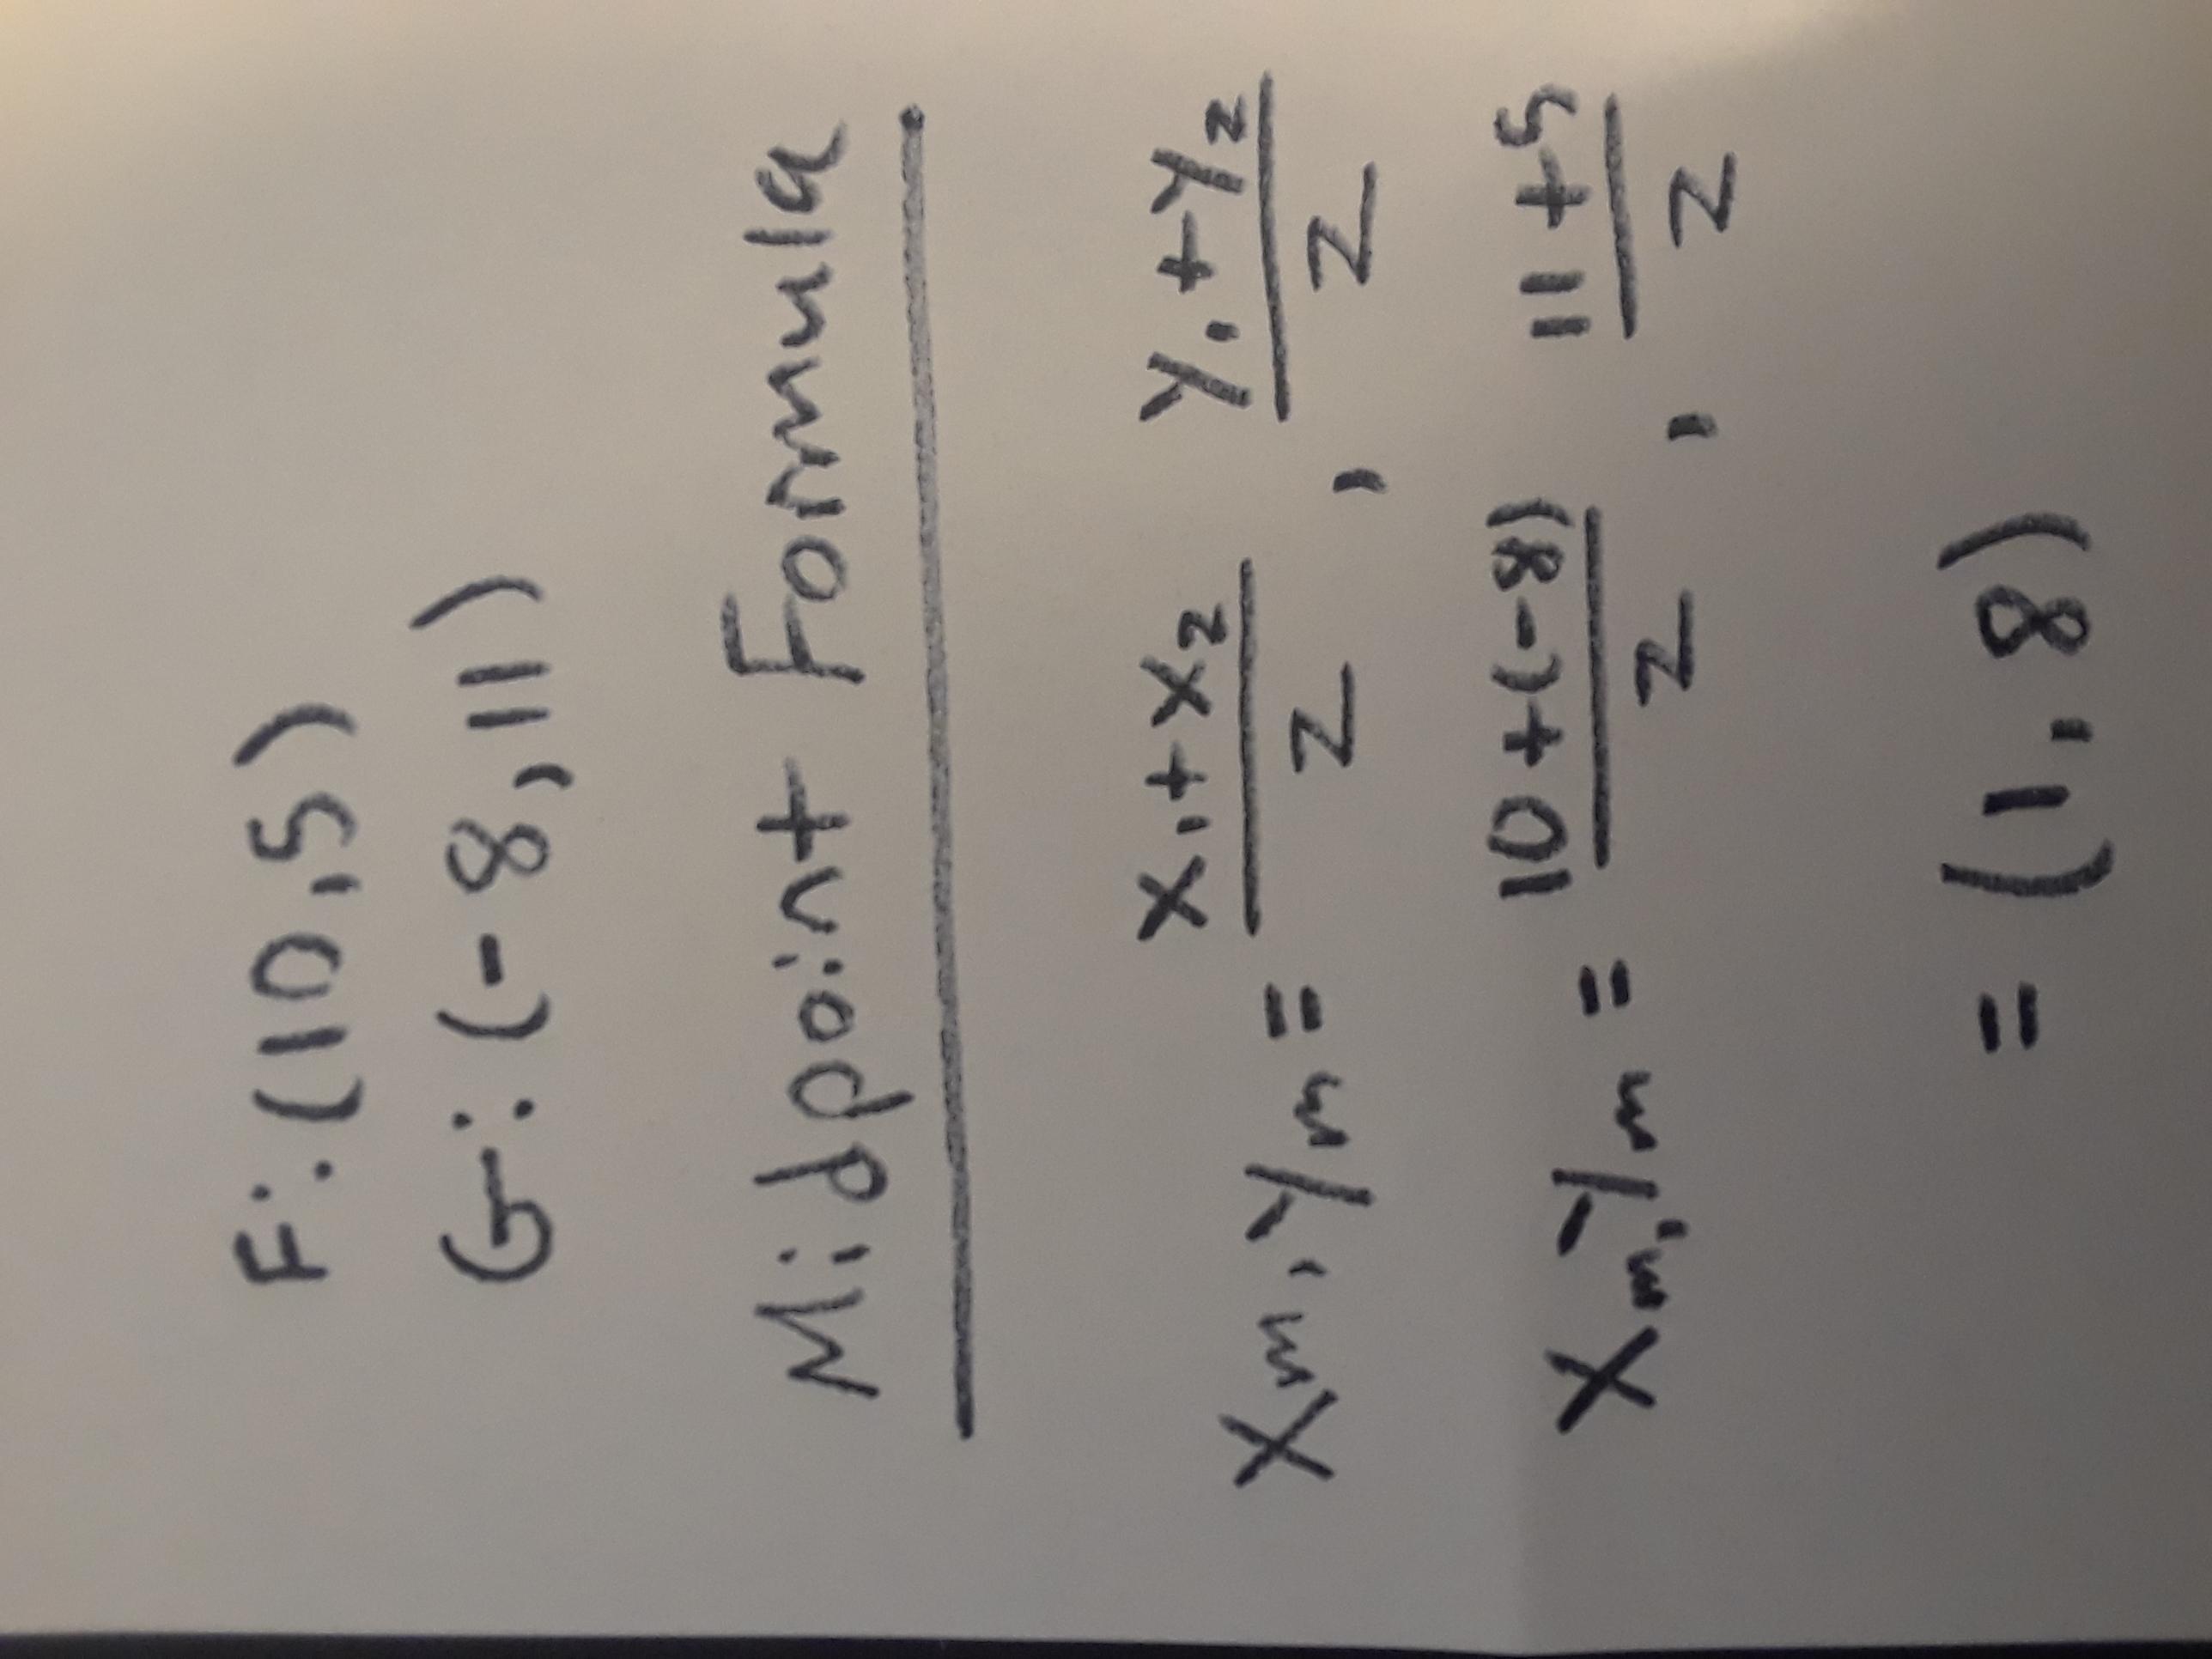 F: (10,5)
G: (-8,11)
Midpoint Formula
Xm, Ym = x₁+x₂/2, y₁+y₂/2
Xm, Ym = 10+(-8)/2, 11+5/2
= (1,8)